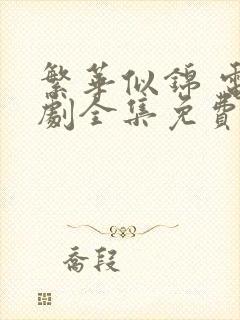 繁華似錦 電
劇全集免費
喬段